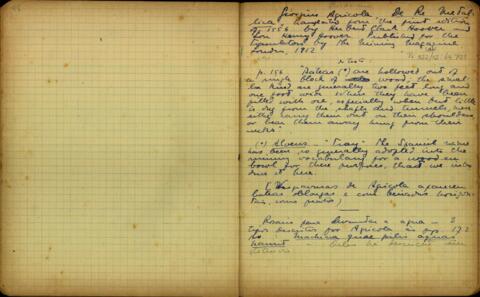 Georgius Agricola, De Re Metal-
lica, translated from the first edition
of 1556 by Herbert Clark Hoover and
Lou Henry Hoover. Published for the
translators by the Mining Magazine
London, 1912
Notas:
p. 156 "Bateas (*) are hollowed out of
a single block of wood, the smal-
ler kind are generally two feet long and
one foot wide. When they have been
filled with ore, especially when but little
is dug from the shafts and tunnels, men
either carry them out on their shoulders,
or bear them away hung from their
necks."
(*) Alveus — "Tray". The Spanish name
has been so generally adopted into the
mining vocabulary for a wooden
bowl for these purposes, that we intro-
duce it here.
gravuras de Agricola aparecem
bateas oblongas e com
Rosario para levantar a agua — 
typos descriptos por Agricola as pags. 172
machina quae pilis aquas
haurit